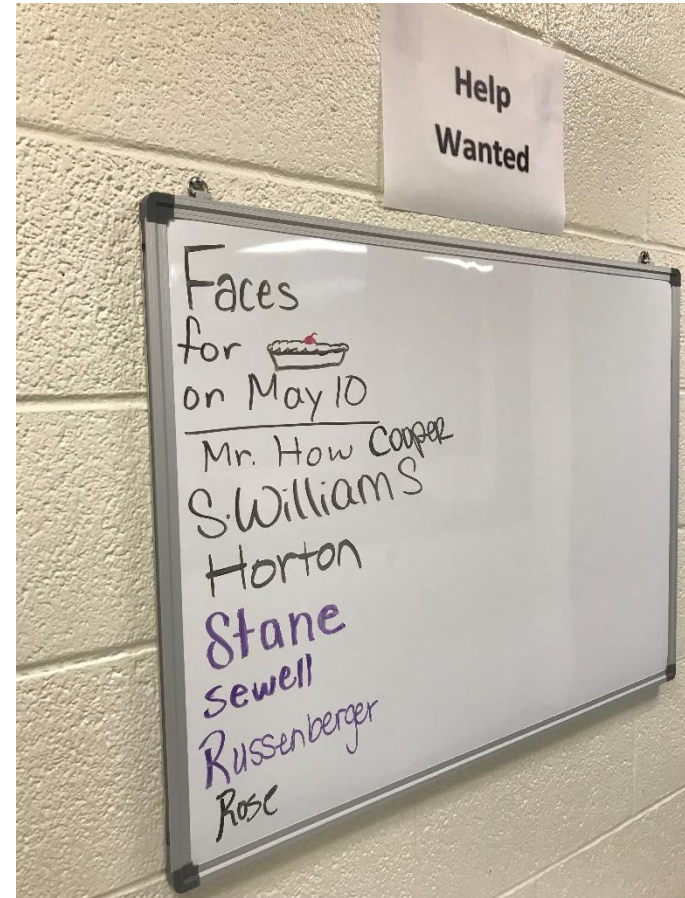 Help
Wanted
Faces
for
on May 10
Mr. How Cooper
S. Williams
Horton
Stane
sewell
Russenberger
Rose